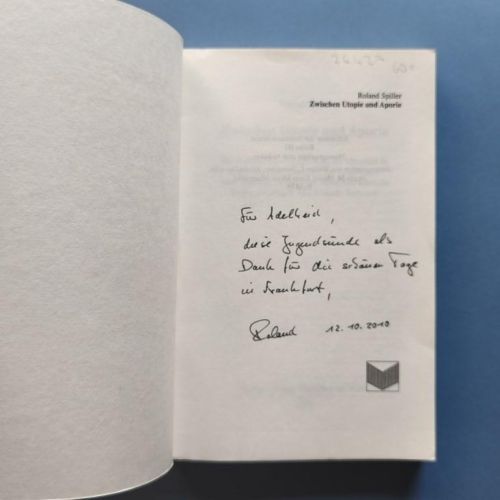 Roland Spiller
Zwischen Utopie und Aporie
Für Adelheid,
diese Jugendsünde als
Dank für die schönen Tage
in Frankfurt,
Roland 12.10.2010